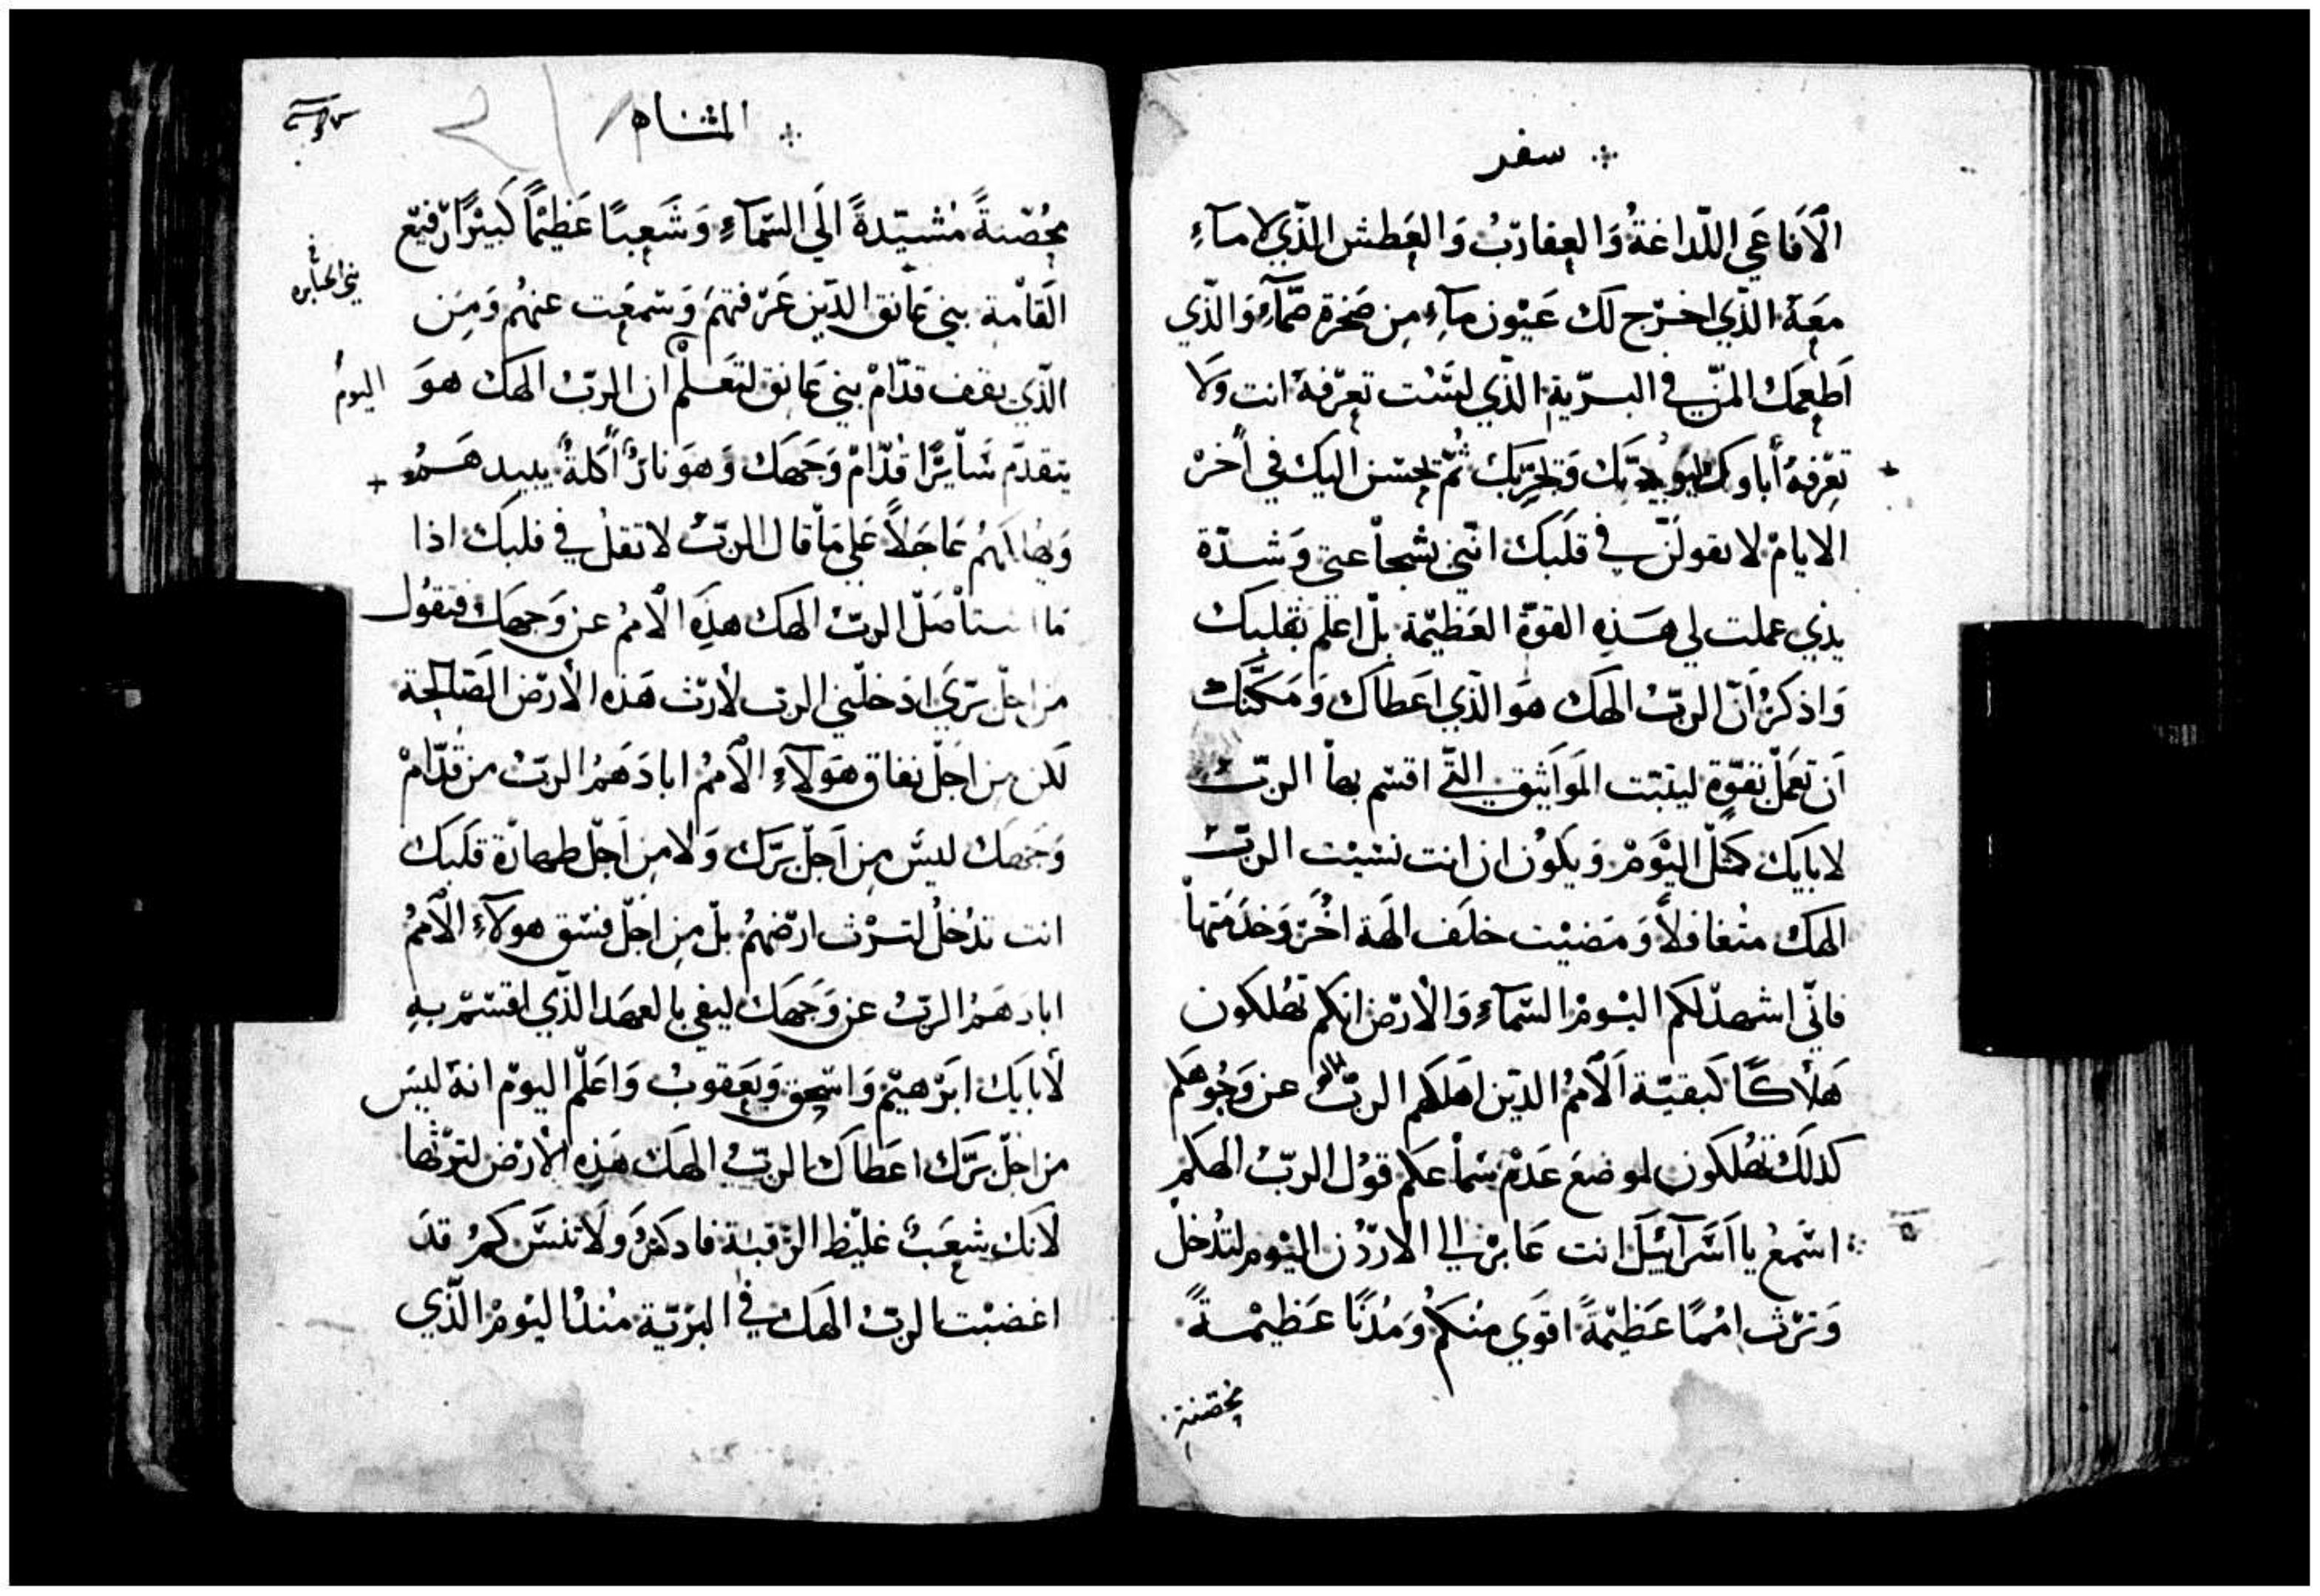 سفر
الأفاعي اللّداغةُ والعقاربُ والعَطش الّذي لا ماءِ
معَهُ الّذي اخرج لك عيون ماءِ مِن صَخرة صمّاءِ وَالذّي
اَطعِمَك المنّ في البرّية الذّي لسْت تعرفهُ انت ولا
تعرفهُ أباوك ويجرّبك ثُمّ يحسن اليك في أخر
الايام لا تقولنّ في قلبك انّني بشجاعتي وَشدّة
يدي عملت لي هذه القوّة العَظيمة بل اعلم بقلبك
وَاذكر أنّ الربّ الهك هو الذّي اعَطاك وَمَكّنك
أن تعمل بقوّة ليثبت المَواثيق التّي اقسم بها الربّ
لابايك كمثل اليَوم وَيكون ان انت نسيْت الربّ
الهك متغافلاً وَمَضيْت خلَف الهَة اخر وَخدَمتها
فانّي اشهد لكم اليوم السّماءِ وَالأرض انكم تهلكون
هَلاكًا كبقيّة الأمم الذين اهلكهم الربّ عن وَجُوهكم
كذلك تهلكون لموضع عَدم سَماعكم قول الربّ الهكم
اسَمع يا اسَرآئيل انت عَابر الي الاردّن اليوم لتدخل
وَترث امُمًا عَظيمةً اقوَي منكم وَمُدنًا عَظيمةً
محصّنة
المثناه
محُصّنةً مُشيّدةً الَي السّمآءِ وَشَعبًا عَظيمًا كَبيْرًا رفيْع
القامة بني عَانق الذّين عَرفتهم وَسَمعَت عنهم وَمِن
بني الجبابره
الذّي يقف قدّام بني عَانق لتعَلم أن الربّ الهك هوَ
اليوم
يتقدّم سَأيرًا قُدّام وَجهَك وَهوَ نارٌ أكلةٌ يبيدهَم
وَيهلكهم عَاجَلاً عَلي مَا قال الربّ لا تقل في قلبك اذا
ما استأصَل الربّ الهك هذِهِ الأمم عن وَجهَك فتقوُل
من اجل برّي ادَخلني الرب لأرث هَذه الأرض الصَالحة
لَكن من اجَل نفاق هَولآءِ الأمم ابادَهَم الربّ من قُدّام
وَجَهك ليسَ مِن اَجل برّك وَلا مِن اَجل طهارة قلَبك
انت تدُخل لترث ارضهُم بل مِن اَجل فسق هولآءِ الأممُ
ابادَهَم الربّ عن وَجهَك ليفي بالعهَد الذّي اقسَم بهِ
لأبايَك ابرَهيم وَاسَحق وَيعَقوب وَاعَلم اليوم انهُ ليسَ
من اجل برّك اعَطاك الربّ الهك هَذِهِ الأرض لترثها
لأنك شعَبٌ غليظ الرّقبة فادكَر وَلا تنسَ كم قدَ
اغضبْت الربّ الهَك في البريّة مُنذ اليَوم الذّي